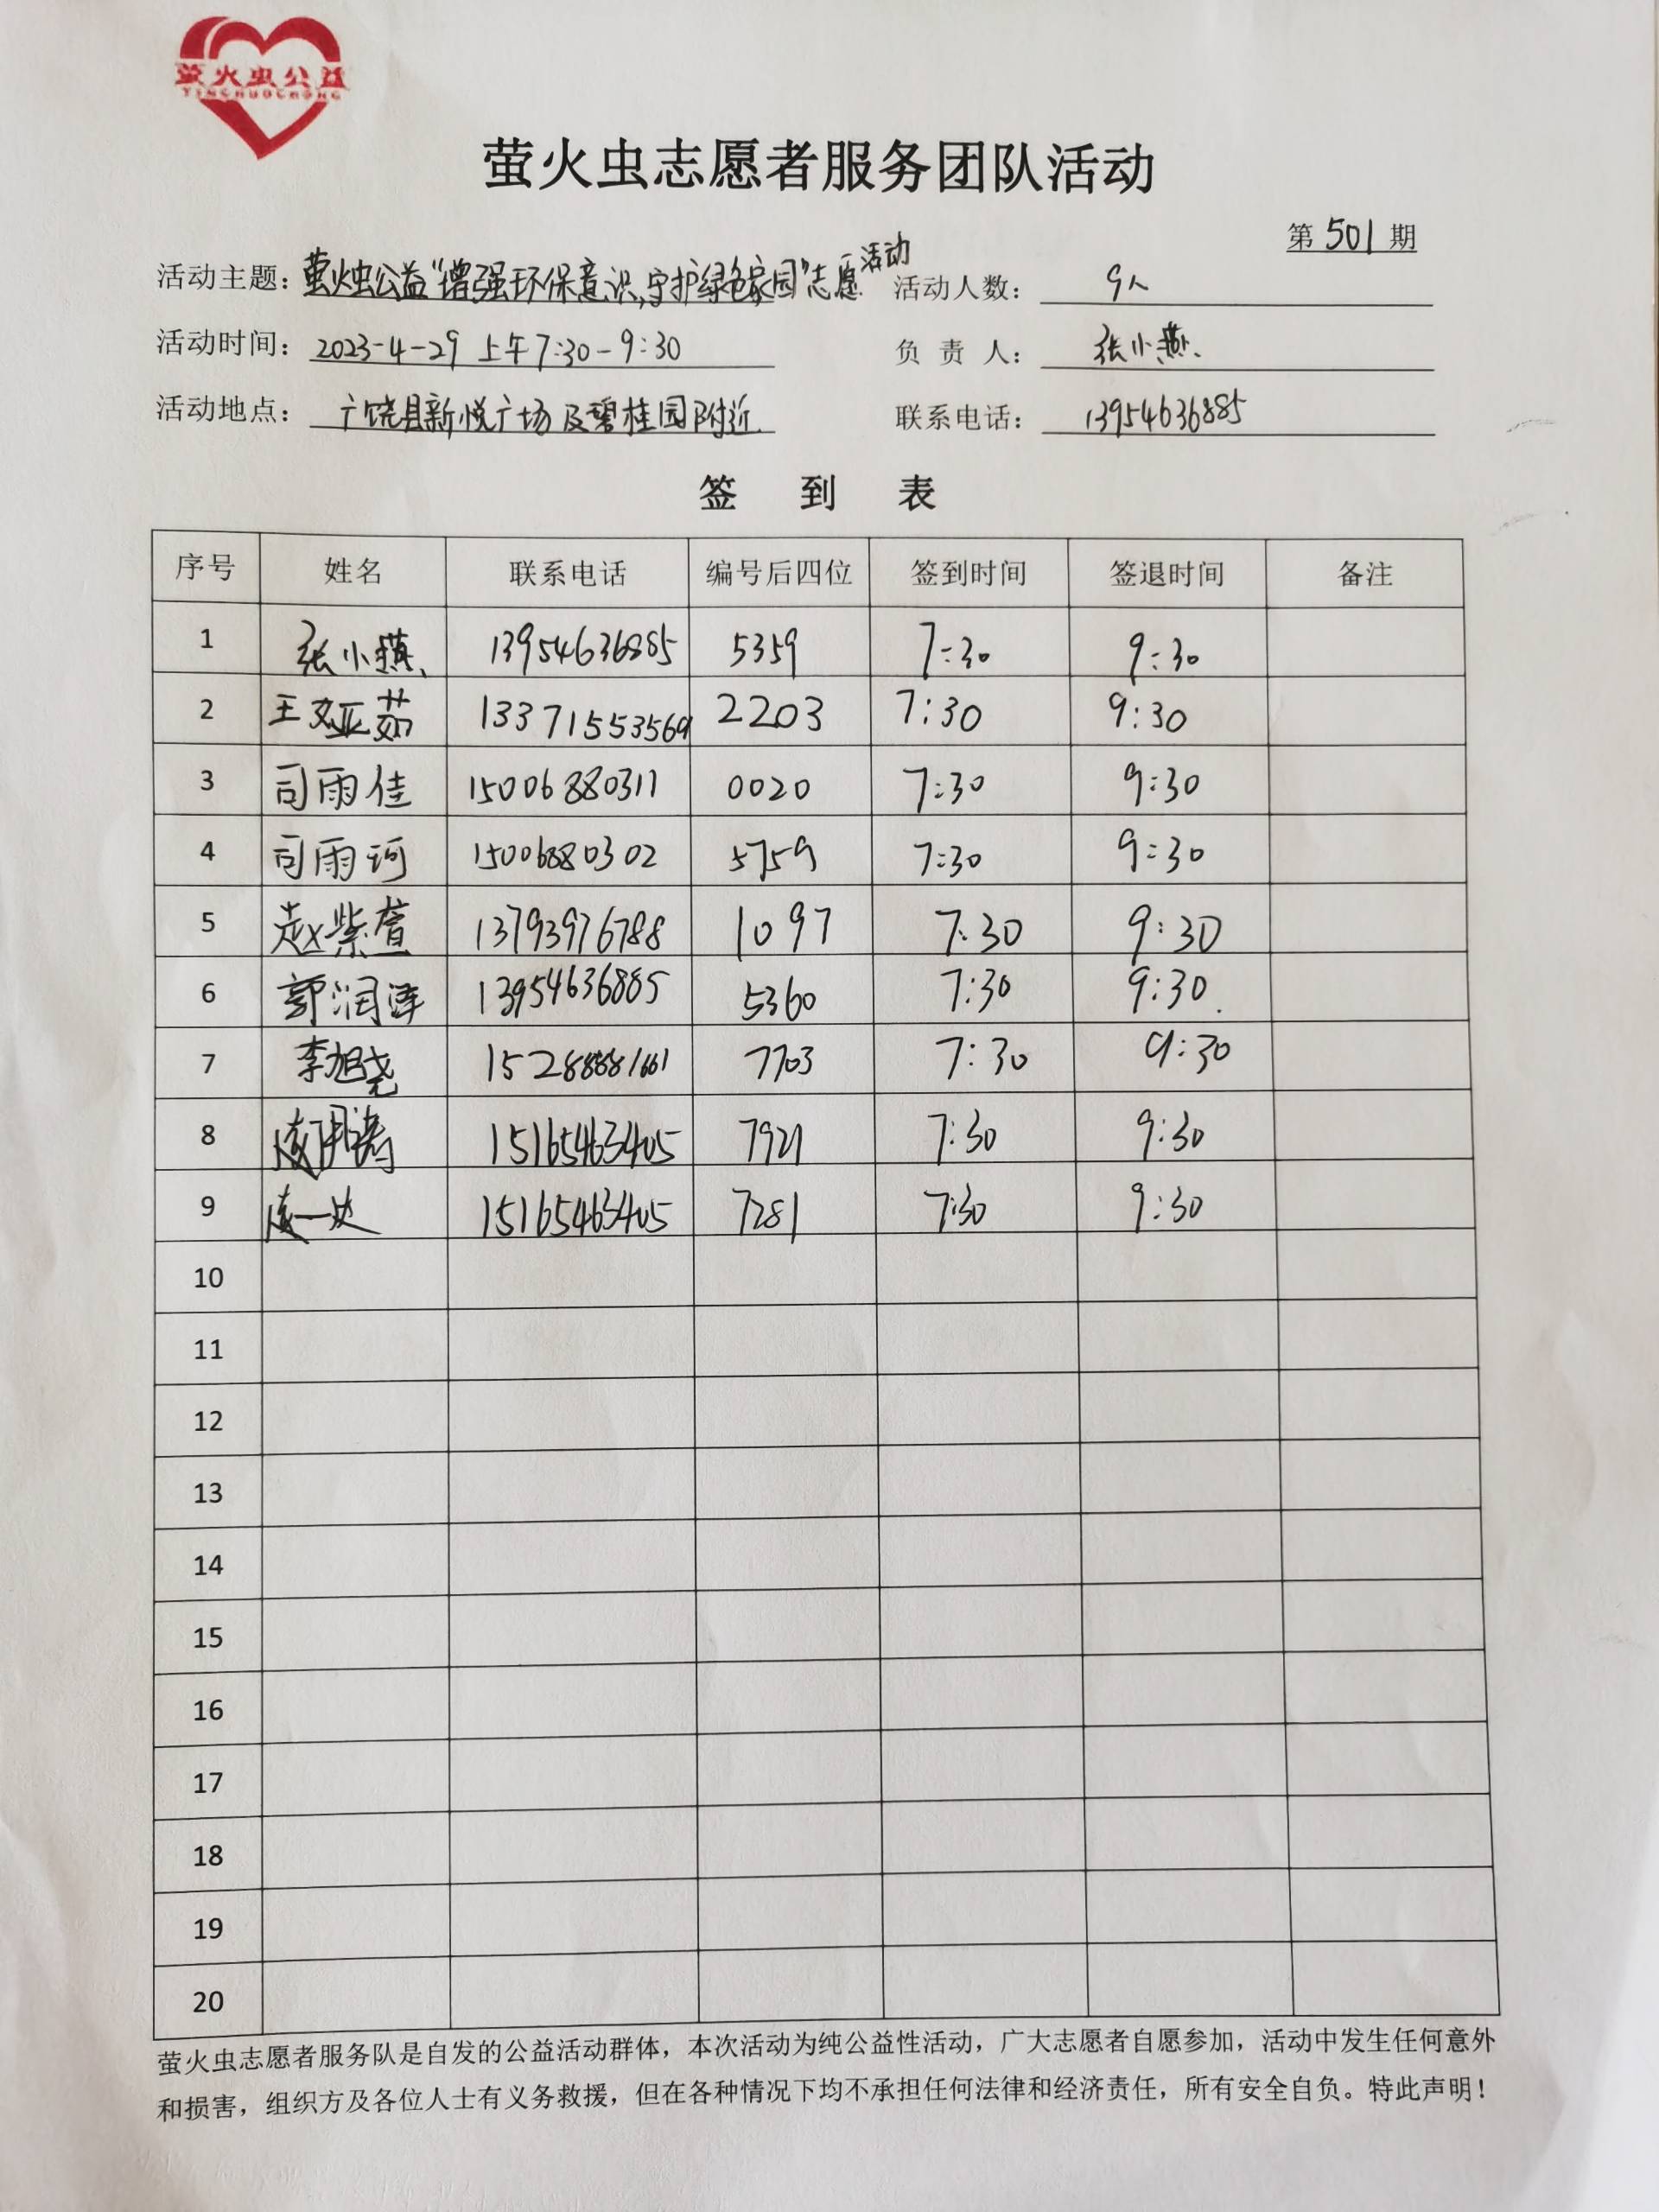 萤火虫公益
YINGHUOCHONG
萤火虫志愿者服务团队活动
第 501 期
活动主题：萤火虫公益“增强环保意识，守护绿色家园”志愿活动 活动人数：9人
活动时间：2023-4-29 上午7:30-9:30 负 责 人：张小燕
活动地点：广饶县新悦广场及碧桂园附近 联系电话：13954636885
签 到 表
序号 姓名 联系电话 编号后四位 签到时间 签退时间 备注
1 张小燕 13954636885 5359 7:30 9:30
2 王亚茹 13371553569 2203 7:30 9:30
3 司雨佳 15006880311 0020 7:30 9:30
4 司雨诃 15006880302 5759 7:30 9:30
5 赵紫萱 13793976788 1097 7:30 9:30
6 郭润泽 13954636885 5360 7:30 9:30
7 李旭尧 15288881661 7703 7:30 9:30
8 15165463405 7921 7:30 9:30
9 15165463405 7281 7:30 9:30
10
11
12
13
14
15
16
17
18
19
20
萤火虫志愿者服务队是自发的公益活动群体，本次活动为纯公益性活动，广大志愿者自愿参加，活动中发生任何意外
和损害，组织方及各位人士有义务救援，但在各种情况下均不承担任何法律和经济责任，所有安全自负。特此声明！